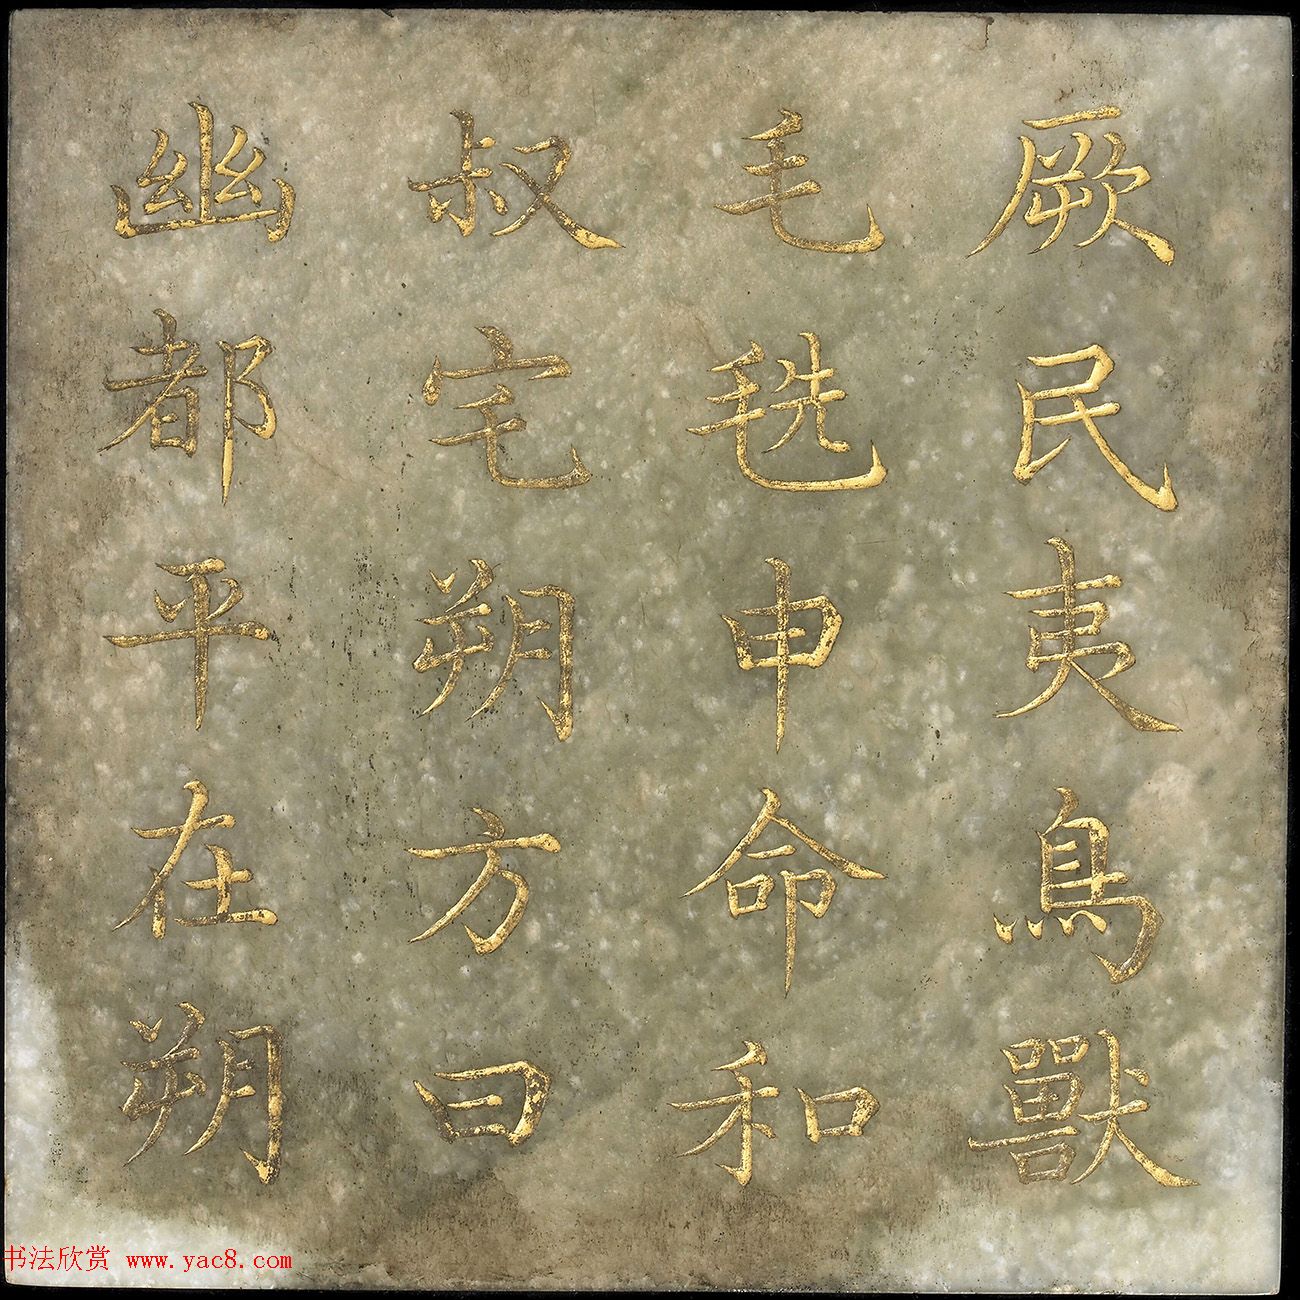 厥民夷鳥獸
毛毨申命和
叔宅朔方曰
幽都平在朔
书法欣赏 www.yac8.com